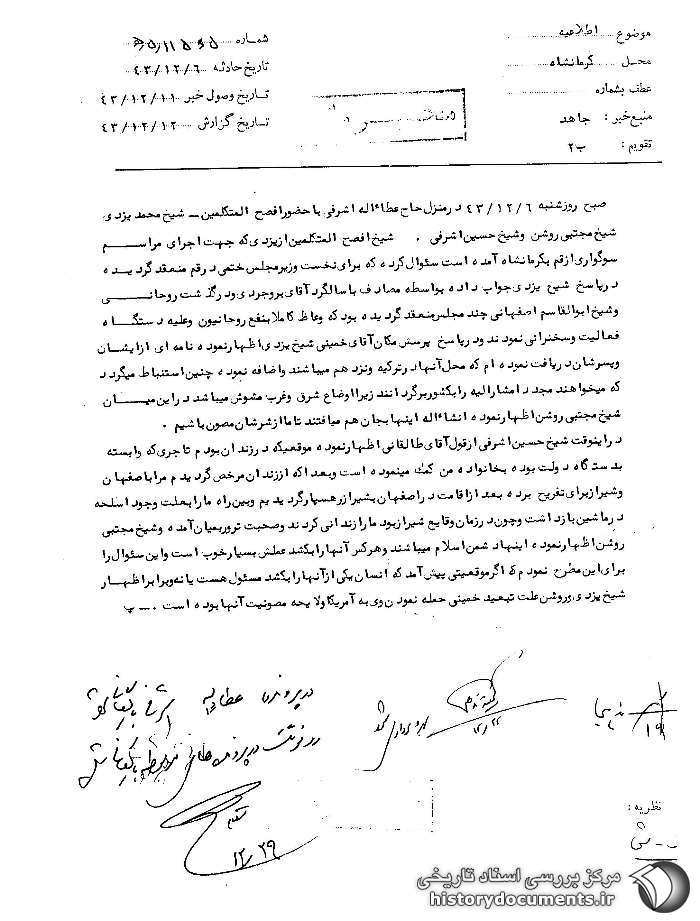 موضوع اطلاعیه
محل کرمانشاه
عطف بشماره
منبع خبر: جاهد
تقویم: ب۲
شماره
تاریخ حادثه ۴۳/۱۲/۶
تاریخ وصول خبر ۴۳/۱۲/۱۱
تاریخ گزارش ۴۳/۱۲/۱۲
صبح روز شنبه ۴۳/۱۲/۶ در منزل حاج عطاء اله اشرفی با حضور افصح المتکلمین ــ شیخ محمد یزدی
شیخ مجتبی روشن وشیخ حسین اشرفی . شیخ افصح المتکلمین از یزدی که جهت اجرای مراسم
سوگواری از قم بکرمانشاه آمده است سئوال کرده که برای نخست وزیر مجلس ختمی در قم منعقد گردیده
در پاسخ شیخ یزدی جواب داده بواسطه مصادف با سالگرد آقای بروجردی ودرگذشت روحانی
وشیخ ابوالقاسم اصفهانی چند مجلس منعقد گردیده بود که وعاظ کاملا بنفع روحانیون وعلیه دستگاه
فعالیت وسخنرانی نمودند ودر پاسخ پرسش مکان آقای خمینی شیخ یزدی اظهار نموده نامه ای از ایشان
وپسرشان دریافت نموده ام که محل آنها در ترکیه ونزد هم میباشند واضافه نموده چنین استنباط میگردد
که میخواهند مجدد امشارالیه را بکشور برگردانند زیرا اوضاع شرق وغرب مشوش میباشد در این میان
شیخ مجتبی روشن اظهار نموده انشاء اله اینها بجان هم میافتند تا ما از شرشان مصون باشیم .
در اینوقت شیخ حسین اشرفی از قول آقای طالقانی اظهار نموده موقعیکه در زندان بودم تاجری که وابسته
بدستگاه دولت بوده بخانواده من کمک مینموده است وبعد اکه از زندان مرخص گردیدم مرا باصفهان
وشیراز برای تفریح برده بعد از اقامت در اصفهان بشیراز رهسپار گردیدیم وبین راه ما را بعلت وجود اسلحه
در ماشین بازداشت وچون در زمان وقایع شیراز بود ما را زندانی کردند وصحبت ترور بمیان آمده وشیخ مجتبی
روشن اظهار نموده اینها دشمن اسلام میباشند وهرکس آنها را بکشد عملش بسیار خوب است واین سئوال را
برای این مطرح نمودم که اگر موقعیتی پیش آمد که انسان یکی از آنها را بکشد مسئول هست یا نه وبرابر اظهار
شیخ یزدی وروشن علت تبعید خمینی حمله نمودن وی به آمریکا ولایحه مصونیت آنها بوده است . ــ پ
در پرونده عطااله اشرفی بایگانی شود
۱۲/۲۹
نظریه :
مرکز بررسی اسناد تاریخی
historydocuments.ir